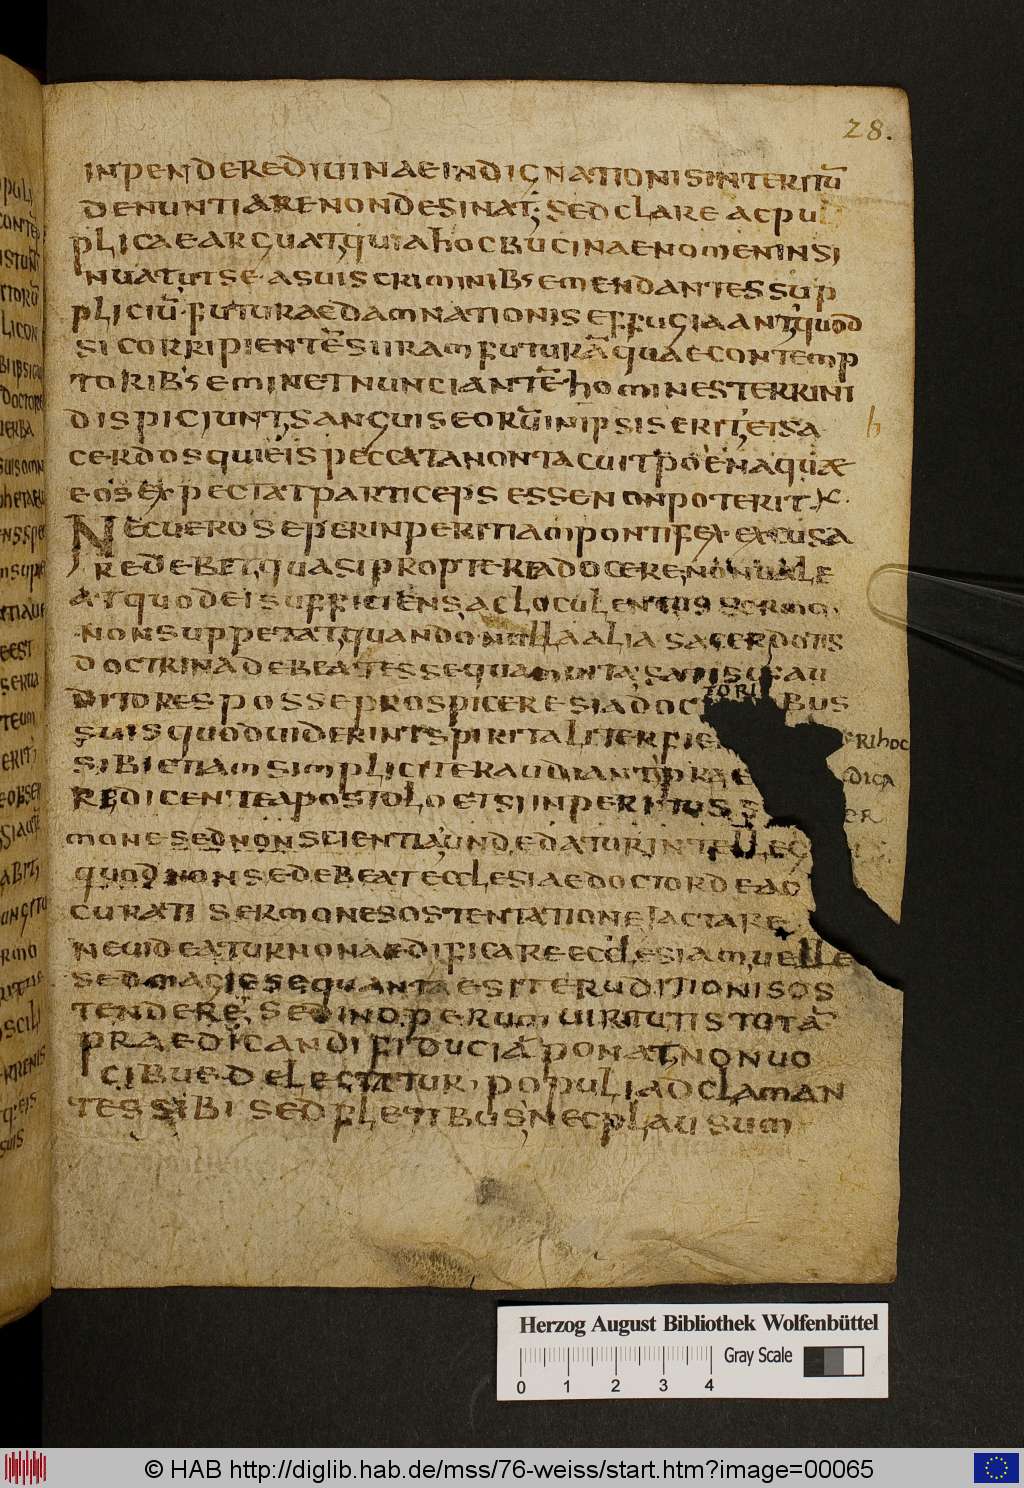 28.
INPENDERE DIUINAE INDIGNATIONIS INTERITŪ
DENUNTIARE NON DESINAT; SED CLARE AC PU
PLICAE ARGUAT, QUIA HOC BUCINAE NOMEN INSI
NUAT, UT SE A SUIS CRIMINIBꝰ EMENDANTES SUP
PLICIŪ FUTURAE DAMNATIONIS EFFUGIAANT, QUOD
SI CORRIPIENTĒ SI IRAM FUTURĀ QUAE CONTEMP
TORIBꝰ EMINET NUNCIANTĒ HOMINES TERRINI
DISPICIUNT, SANGUIS EORŪ IN IPSIS ERIT, ET SA
CERDOS QUI EIS PECCATA NON TACUIT POENA QUAE
EOS EXPECTAT PARTICEPS ESSE NON POTERIT
NEC UERO SE PER INPERITIAM PONTIFEX EXCUSA
RE DEBET, QUASI PROPTEREA DOCERE NON UALE
AT QUOD EI SUFFICIENS AC LOCULENTUS SERMO
NON SUPPETAT, QUANDO NULLA ALIA SACERDOTIS
DOCTRINA DEBEAT ESSE QUAM UITA; SATISQ AU
DITORES POSSE PROSPICERE SI A DOCTORIBUS
SUIS QUOD UIDERINT SPIRITALITER FIERI HOC
SIBI ETIAM SIMPLICITER AUDIANT PRAEDICA
RE DICENTE APOSTOLO ET SI INPERITUS SER
MONE SED NON SCIENTIA, UNDE DATUR INTELLEGI
QUOD NON SE DEBEAT ECCLESIAE DOCTOR DE AC
CURATI SERMONES OSTENTATIONE IACTARE
NE UIDEATUR NON AEDIFICARE ECCLESIAM UELLE
SED MAGIS SE QUANTAE SIT ERUDITIONIS OS
TENDERE, SED IN OPERUM UIRTUTIS TOTĀ
PRAEDICANDI FIDUCIĀ PONAT, NON UO
CIBUS DELECTETUR, POPULI ADCLAMAN
TES SIBI SED FLETIBUS NEC PLAUSUM
Herzog August Bibliothek Wolfenbüttel
Gray Scale
0 1 2 3 4
© HAB http://diglib.hab.de/mss/76-weiss/start.htm?image=00065